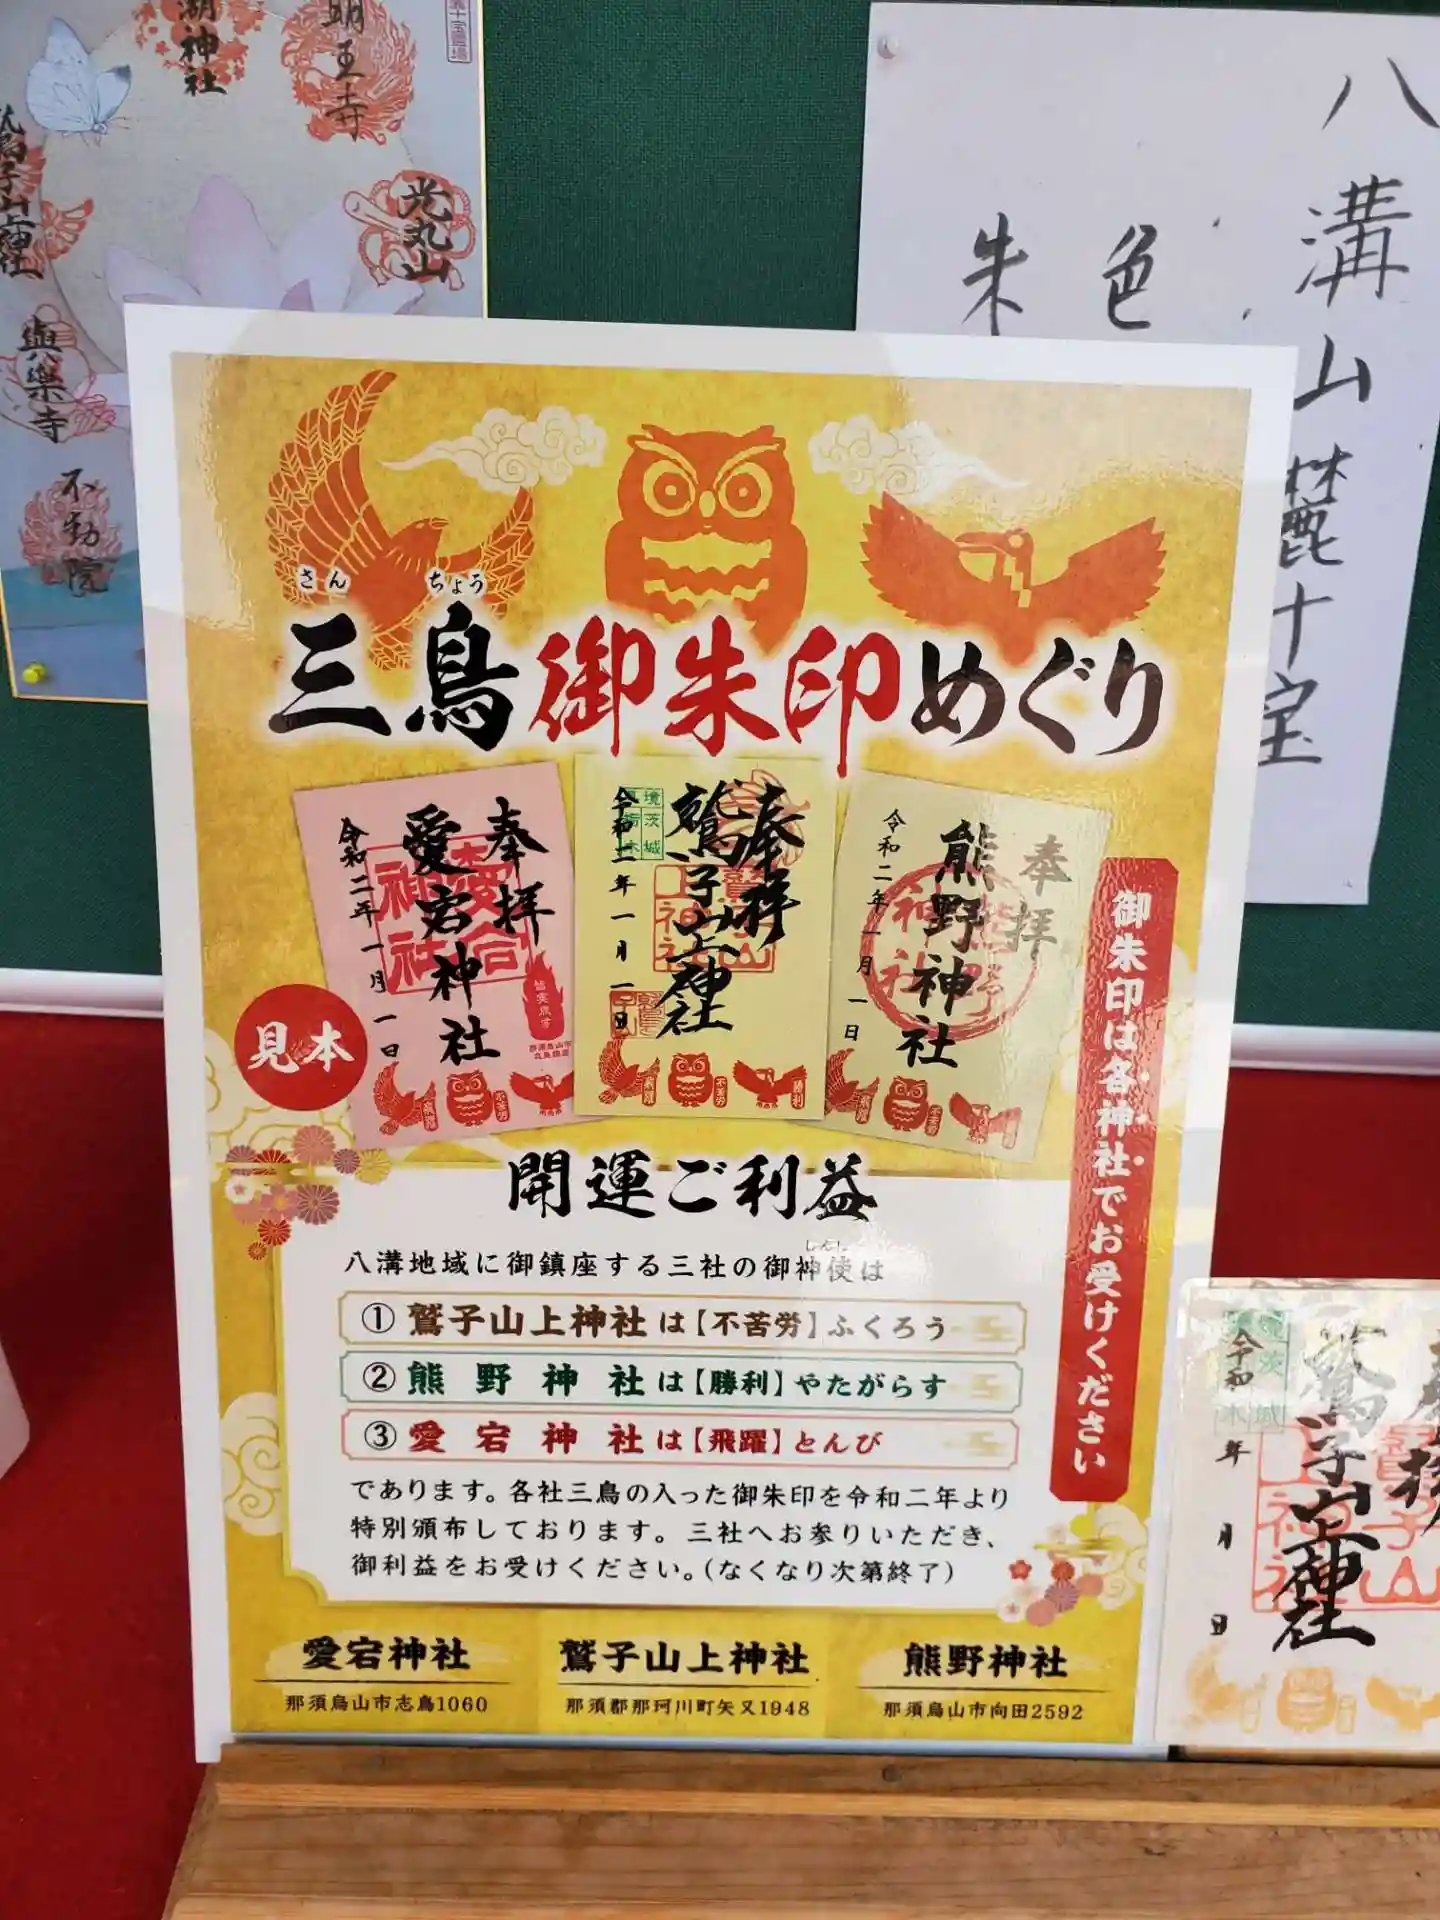 湖神社
明王寺
光丸山
鷲子山上神社
與樂寺
不動院
八溝山麓十宝
朱色
さんちょう
三鳥御朱印めぐり
奉拝
愛宕神社
令和二年一月一日
奉拝
鷲子山上神社
令和二年一月一日
奉拝
熊野神社
令和二年一月一日
見本
御朱印は各神社でお受けください
開運ご利益
八溝地域に御鎮座する三社の御神使は
①鷲子山上神社は【不苦労】ふくろう
②熊野神社は【勝利】やたがらす
③愛宕神社は【飛躍】とんび
であります。各社三鳥の入った御朱印を令和二年より
特別頒布しております。三社へお参りいただき、
御利益をお受けください。(なくなり次第終了)
愛宕神社
那須烏山市志鳥1060
鷲子山上神社
那須郡那珂川町矢又1948
熊野神社
那須烏山市向田2592
鷲子山上神社
令和 年 月 日